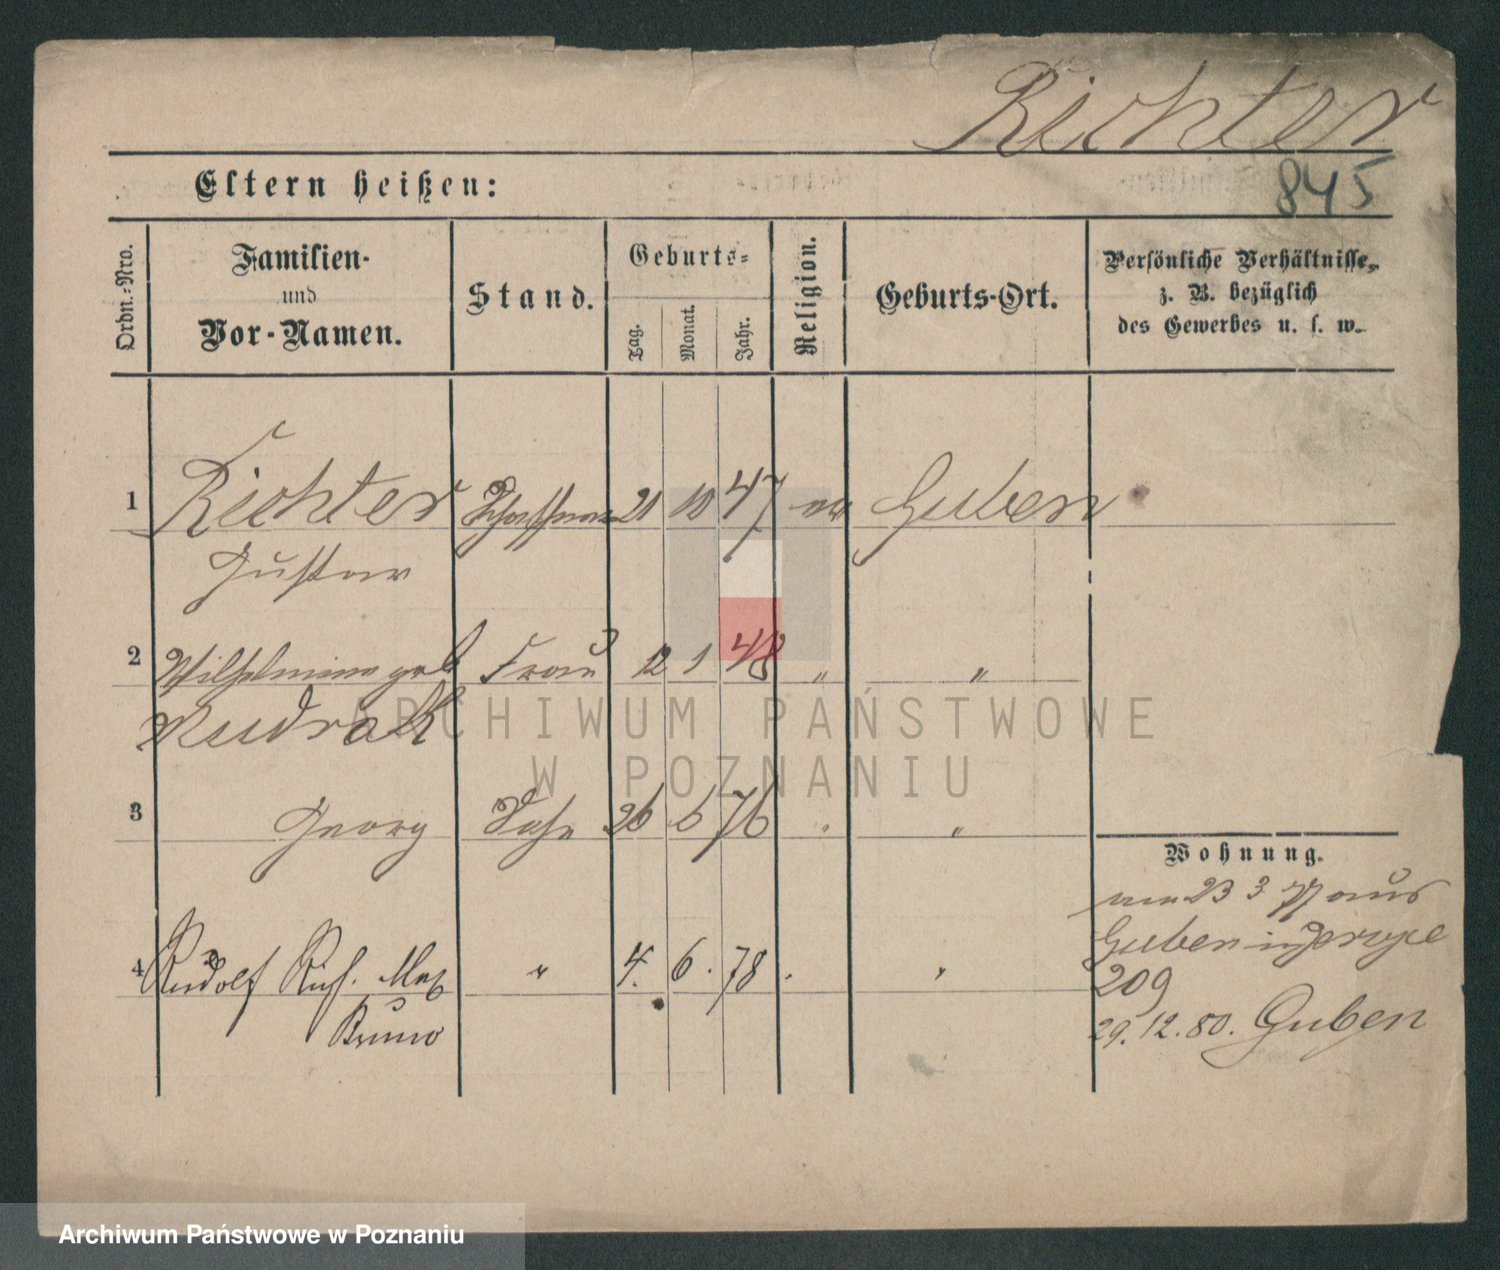 Richter
845
Eltern heißen:
Ordn.-Nro.
Familien-
und
Vor-Namen.
Stand.
Geburts-
Tag.
Monat.
Jahr.
Religion.
Geburts-Ort.
Persönliche Verhältnisse,
z. B. bezüglich
des Gewerbes u. s. w.
1 Richter Schaffner 21 10 47 ev Guben
Gustav
2 Wilhelmine geb Frau 12 1 48 „ „
ARCHIWUM PAŃSTWOWE
W POZNANIU
3 Georg Sohn 26 6 76 „ „
Wohnung.
am 23 3 77 aus
Guben in
4 Rudolf Rich. Max „ 4. 6. 78 „ „
209
Bruno
29. 12. 80. Guben
Archiwum Państwowe w Poznaniu